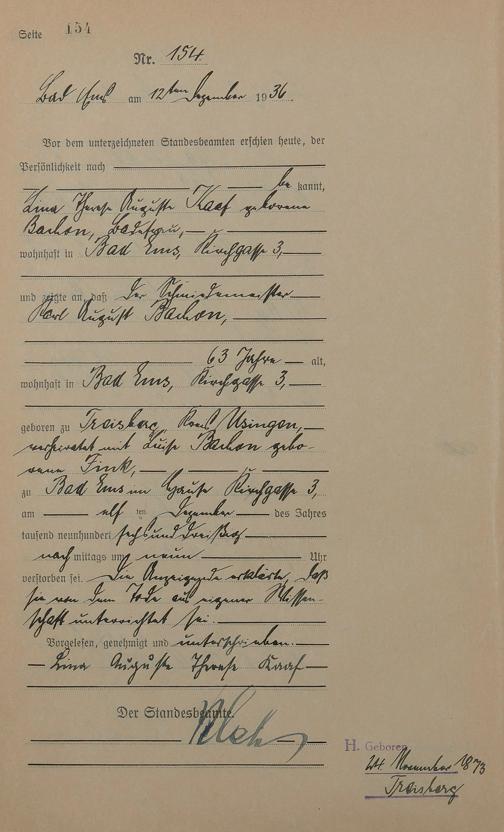 Seite 154
Nr. 154
Bad Ems am 12ten Dezember 1936.
Vor dem unterzeichneten Standesbeamten erschien heute, der
Persönlichkeit nach
bekannt,
Lina Therese Auguste Kaaf geborene
Bachon,
wohnhaft in Bad Ems, Kirchgasse 3,
und zeigte an, daß der Schmiedemeister
Karl August Bachon,
63 Jahre alt,
wohnhaft in Bad Ems, Kirchgasse 3,
geboren zu Treisberg, Kreis Usingen,
verheiratet mit Luise Bachon gebo-
rene Fink,
zu Bad Ems im Hause Kirchgasse 3,
am elf ten Dezember des Jahres
tausend neunhundert sechsunddreißig
nachmittags um neun Uhr
verstorben sei. Die Anzeigende erklärte, daß
sie von dem Tode aus eigener Wissen-
schaft unterrichtet sei.
Vorgelesen, genehmigt und unterschrieben.
Lina Auguste Therese Kaaf
Der Standesbeamte.
H. Geboren
24 November 1873
Treisberg